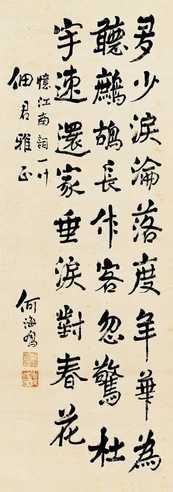 多少淚淪落度年華為
聽鷓鴣長作客忽驚杜
宇速還家垂淚對春花
憶江南詞一什
佃君雅正
何海鳴